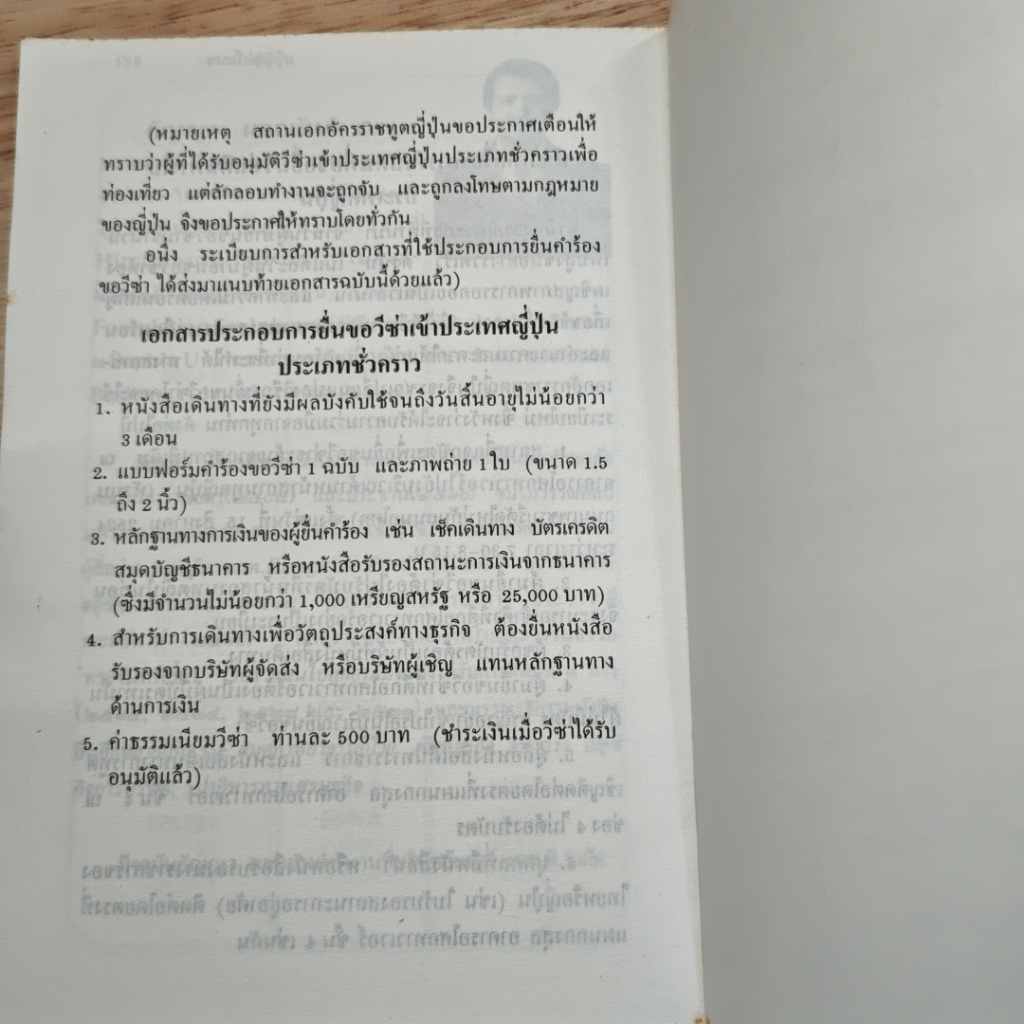 (หมายเหตุ สถานเอกอัครราชทูตญี่ปุ่นขอประกาศเตือนให้
ทราบว่าผู้ที่ได้รับอนุมัติวีซ่าเข้าประเทศญี่ปุ่นประเภทชั่วคราวเพื่อ
ท่องเที่ยว แต่ลักลอบทำงานจะถูกจับ และถูกลงโทษตามกฎหมาย
ของญี่ปุ่น จึงขอประกาศให้ทราบโดยทั่วกัน
อนึ่ง ระเบียบการสำหรับเอกสารที่ใช้ประกอบการยื่นคำร้อง
ขอวีซ่า ได้ส่งมาแนบท้ายเอกสารฉบับนี้ด้วยแล้ว)
เอกสารประกอบการยื่นขอวีซ่าเข้าประเทศญี่ปุ่น
ประเภทชั่วคราว
1. หนังสือเดินทางที่ยังมีผลบังคับใช้จนถึงวันสิ้นอายุไม่น้อยกว่า
3 เดือน
2. แบบฟอร์มคำร้องขอวีซ่า 1 ฉบับ และภาพถ่าย 1 ใบ (ขนาด 1.5
ถึง 2 นิ้ว)
3. หลักฐานทางการเงินของผู้ยื่นคำร้อง เช่น เช็คเดินทาง บัตรเครดิต
สมุดบัญชีธนาคาร หรือหนังสือรับรองสถานะการเงินจากธนาคาร
(ซึ่งมีจำนวนไม่น้อยกว่า 1,000 เหรียญสหรัฐ หรือ 25,000 บาท)
4. สำหรับการเดินทางเพื่อวัตถุประสงค์ทางธุรกิจ ต้องยื่นหนังสือ
รับรองจากบริษัทผู้จัดส่ง หรือบริษัทผู้เชิญ แทนหลักฐานทาง
ด้านการเงิน
5. ค่าธรรมเนียมวีซ่า ท่านละ 500 บาท (ชำระเงินเมื่อวีซ่าได้รับ
อนุมัติแล้ว)